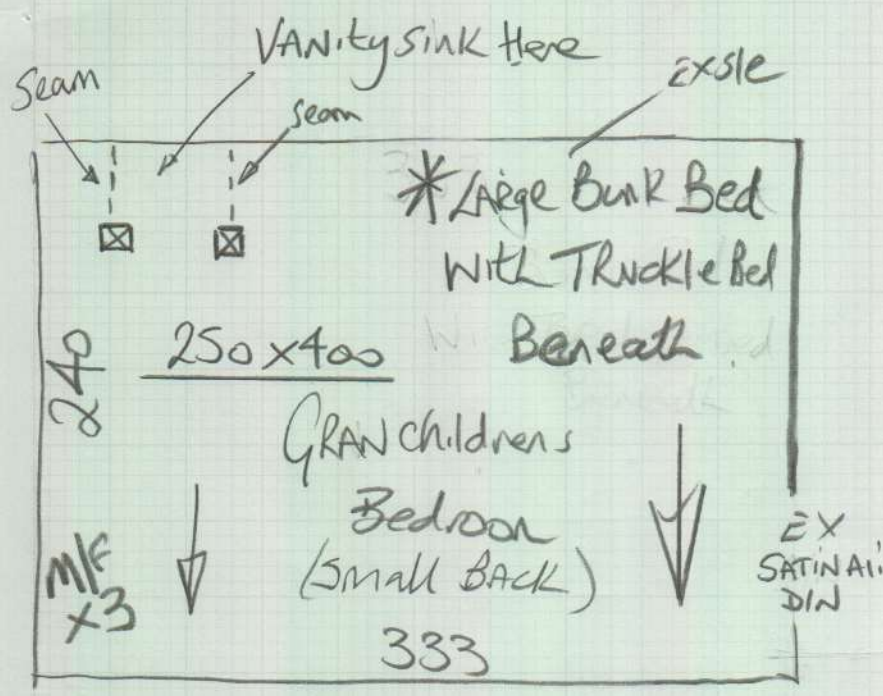 VANity SINK Here
Seam
Seam
EXSLE
*LARge BunK Bed
With TRuckle Bed
Beneath
240
250 x 400
GRANchildrens
Bedroom
(Small BACK)
M/F
x3
333
EX
SATIN Ali
DIN